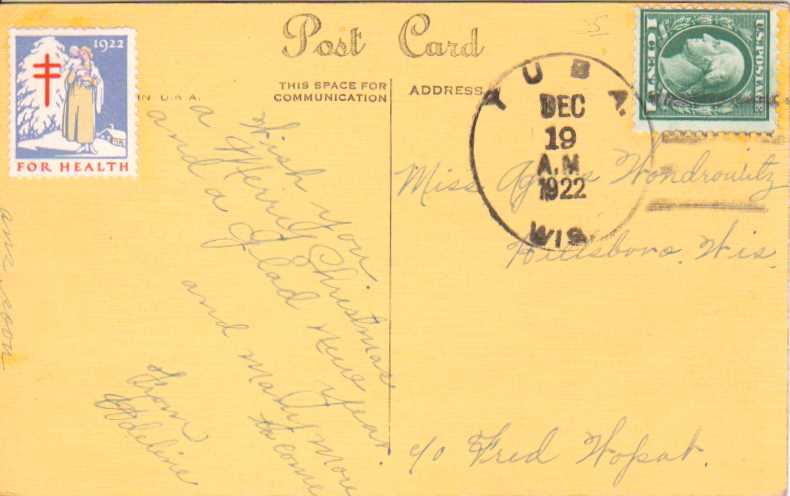 Post Card
1922
FOR HEALTH
IN U.S.A.
THIS SPACE FOR
COMMUNICATION
ADDRESS
5
U.S. POSTAGE
1 CENT 1
YUBA
DEC
19
A.M
1922
WIS
Wish you
a Merry Christmas
and a Glad New Year
and many more
to come
From
Adeline
ans soon
Miss Agnes Wondrowitz
Hillsboro, Wis.
c/o Fred Wopat.